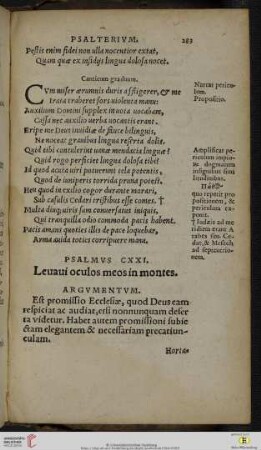 PSALTERIVM. 283
Pestis enim fidei non ulla nocentior extat,
Quàm quæ ex insidijs lingua dolosa nocet.
Canticum graduum.
CVm miser ærumnis duris affligerer, & me
In uia traheret sors uiolenta manu:
Auxilium Domini supplex in uota uocabam,
Cassa nec auxilio uerba uocantis erant.
Eripe me Deus inuidiæ de fauce bilinguis,
Ne noceat grauibus lingua referta dolis.
Quid tibi contulerint uanæ mendacia linguæ?
Quid rogo persiciet lingua dolosa tibi?
Id quod acuta uiri posuerunt tela potentis,
Quod de iuniperis torrida pruna potest.
Heu quod in exilio cogor durante morari,
Sub casulis Cedari tristibus esse comes. †
Multa diu quiris sum conuersatus iniquis,
Qui tranquilla odio commoda pacis habent.
Pacis amans quoties illis de pace loquebar,
Arma auida toties corripuere manu.
Narrat pericu-
lum.
Propositio.
Amplificat pe-
riculum impio-
rum dogmatum
insignibus simi-
litudinibus.
quo repetit pro-
positionem, &
periculum ex-
ponit.
† Iudæis ad me
ridiem erant A
rabes siue Ce-
dar, & Mesech
ad septentrio-
nem.
PSALMVS CXXI.
Leuaui oculos meos in montes.
ARGVMENTVM.
Est promissio Ecclesiæ, quod Deus eam
respiciat ac audiat, etsi nonnunquam deser
ta uidetur. Habet autem promissioni subie
ctam elegantem & necessariam precatiun-
culam.
Horta-